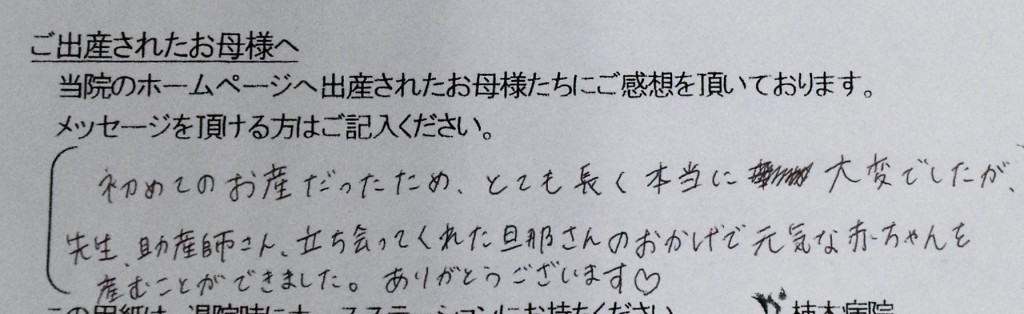 ご出産されたお母様へ
当院のホームページへ出産されたお母様たちにご感想を頂いております。
メッセージを頂ける方はご記入ください。
初めてのお産だったため、とても長く本当に 大変でしたが、
先生、助産師さん、立ち会ってくれた旦那さんのおかげで元気な赤ちゃんを
産むことができました。ありがとうございます♡
この用紙は、退院時にナースステーションにお持ちください 柿木病院